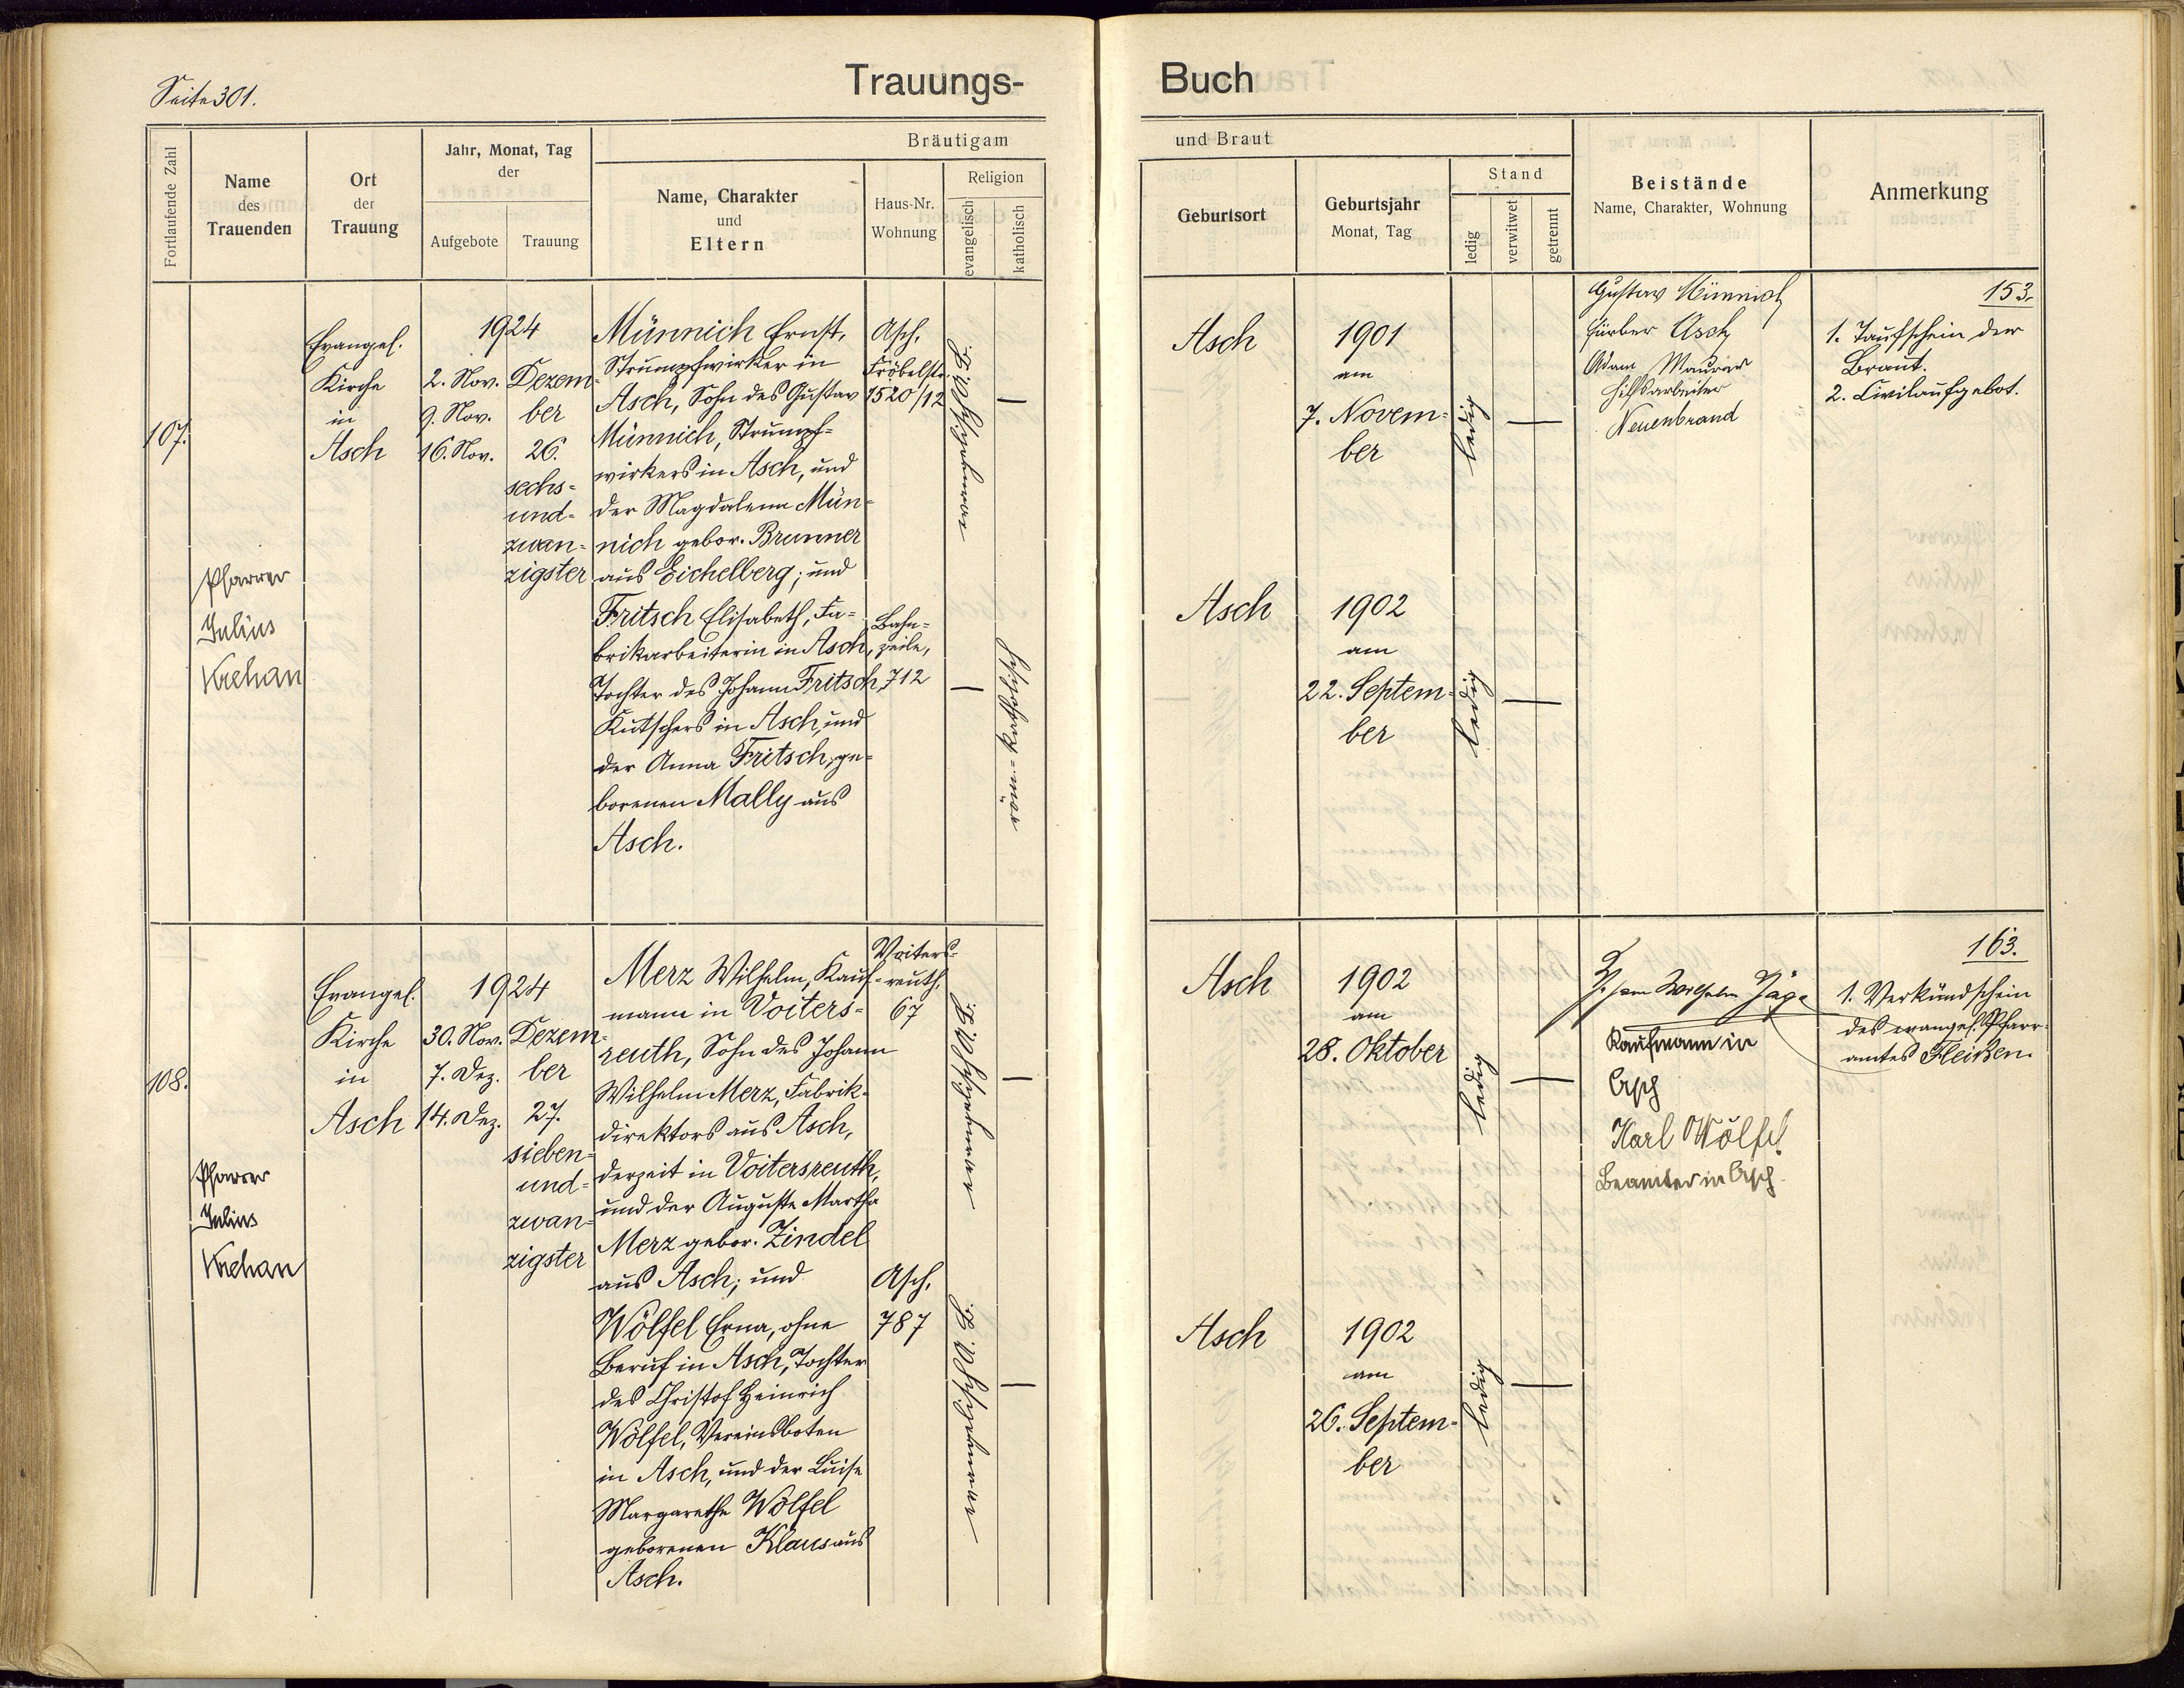 Seite 301.
Trauungs-
Fortlaufende Zahl
Name
des
Trauenden
Ort
der
Trauung
Jahr, Monat, Tag
der
Aufgebote
Trauung
Bräutigam
Name, Charakter
und
Eltern
Haus-Nr.
Wohnung
Religion
evangelisch
katholisch
107.
Pfarrer
Julius
Krehan
Evangel.
Kirche
in
Asch
1924
2. Nov.
9. Nov.
16. Nov.
Dezem-
ber
26.
sechs-
und-
zwan-
zigster
Münnich Ernst,
Strumpfwirker in
Asch, Sohn des Gustav
Münnich, Strumpf-
wirkers in Asch, und
der Magdalena Mün-
nich gebor. Brunner
aus Eichelberg; und
Fritsch Elisabeth, Fa-
brikarbeiterin in Asch,
Tochter des Johann Fritsch,
Kutschers in Asch, und
der Anna Fritsch, ge-
borenen Mally aus
Asch.
Asch,
Fröbelstr.
1520/12
Bahn-
zeile,
712
—
—
röm.-katholisch
108.
Pfarrer
Julius
Krehan
Evangel.
Kirche
in
Asch
1924
30. Nov.
7. Dez.
14. Dez.
Dezem-
ber
27.
sieben-
und-
zwan-
zigster
Merz Wilhelm, Kauf-
mann in Voiters-
reuth, Sohn des Johann
Wilhelm Merz, Fabrik-
direktors aus Asch,
derzeit in Voitersreuth,
und der Auguste Martha
Merz gebor. Zindel
aus Asch; und
Wölfel Erna, ohne
Beruf in Asch, Tochter
des Christof Heinrich
Wölfel, Vereinsboten
in Asch, und der Luise
Margarethe Wölfel
geborenen Klaus aus
Asch.
Voiters-
reuth,
67
Asch,
787
—
—
Buch
und Braut
Geburtsort
Geburtsjahr
Monat, Tag
Stand
ledig
verwitwet
getrennt
Beistände
Name, Charakter, Wohnung
Anmerkung
Asch
1901
am
7. Novem-
ber
ledig
—
Gustav Münnich
Färber Asch
Adam Maurer
Hilfsarbeiter
Neuenbrand
153.
1. Taufschein der
Braut.
2. Civilaufgebot.
Asch
1902
am
22. Septem-
ber
ledig
—
Asch
1902
am
28. Oktober
ledig
—
Kaufmann in
Asch
Karl Wölfel
Beamter in Asch
163.
1. Verkündschein
des evangel. Pfarr-
amtes Fleißen.
Asch
1902
am
26. Septem-
ber
ledig
—